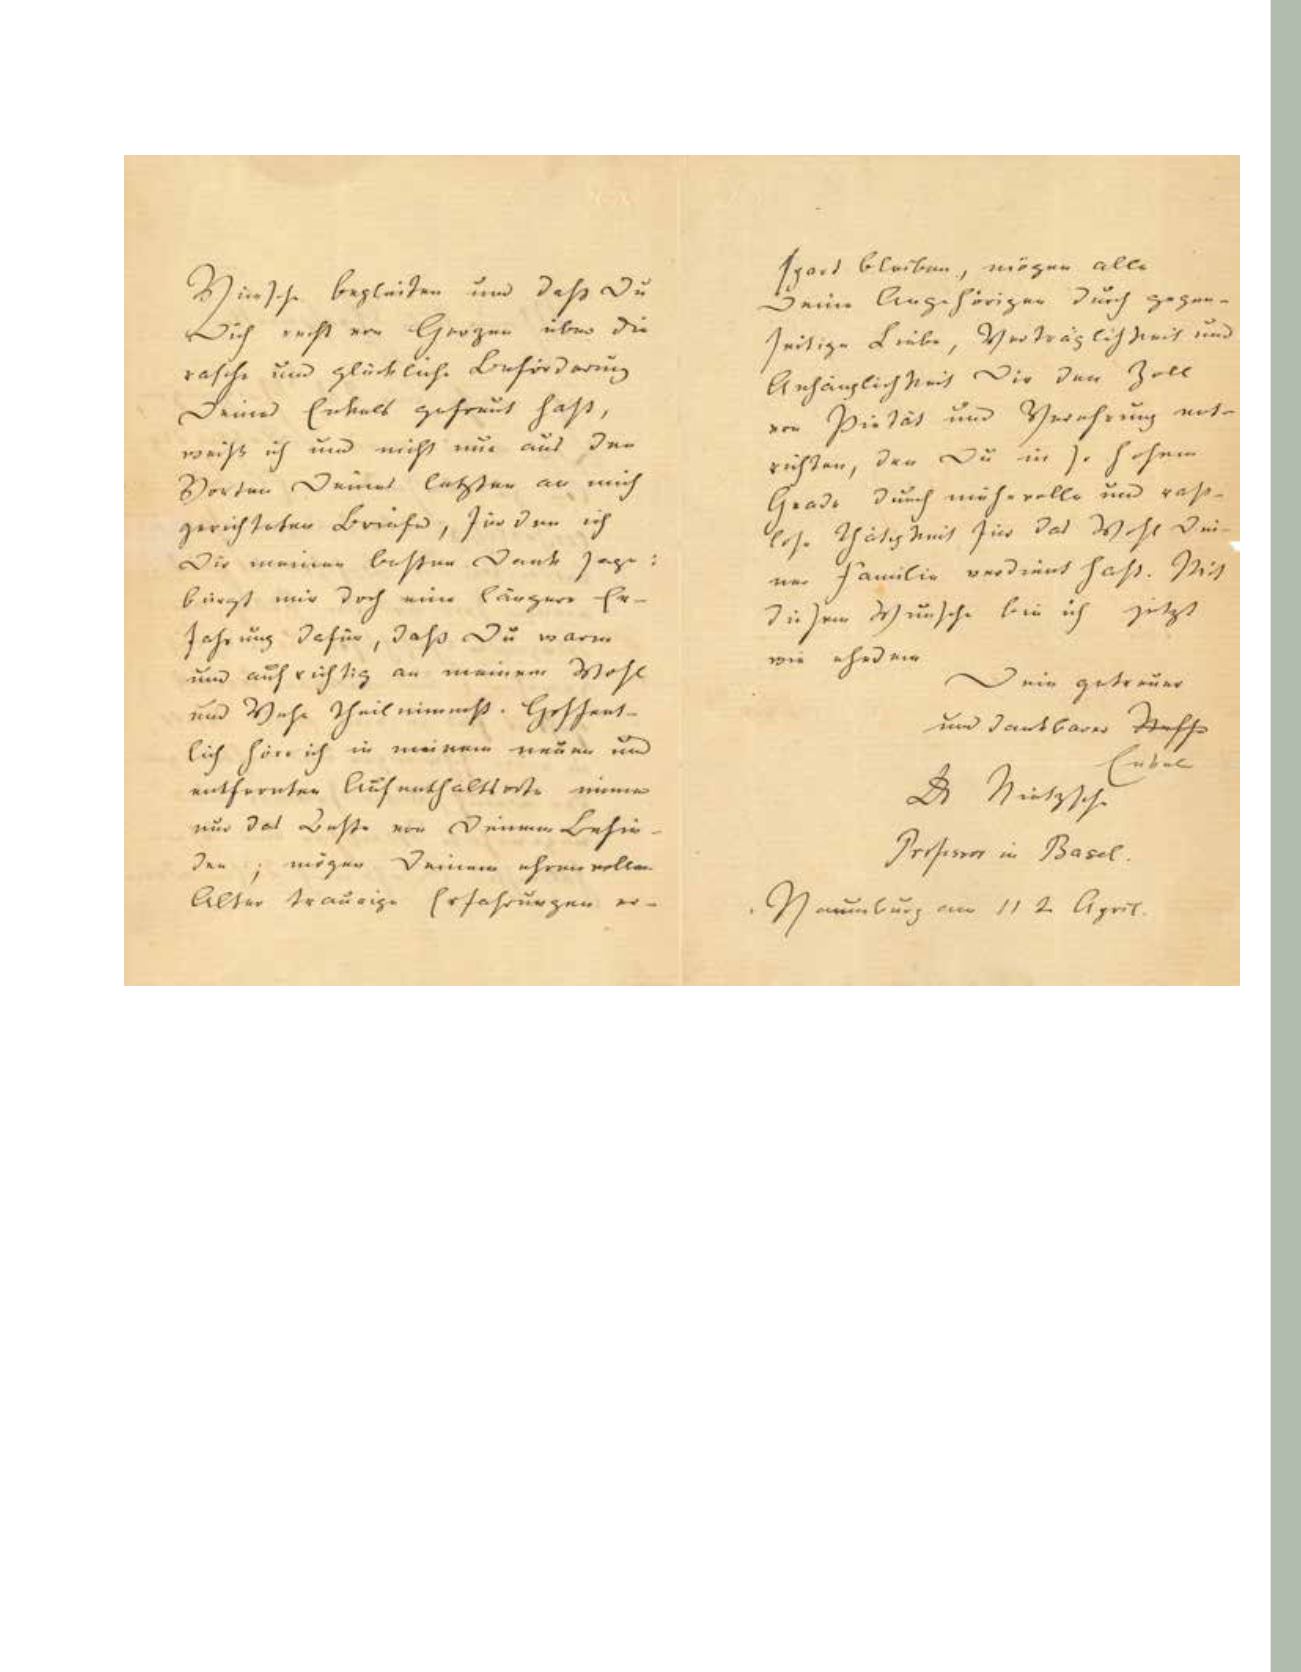 Wünsche begleiten und daß Du
Dich recht von Herzen über die
rasche und glückliche Beförderung
Deines Enkels gefreut hast,
weiß ich und nicht nur aus den
Worten Deines letzten an mich
gerichteten Briefes, für den ich
Dir meinen besten Dank sage:
bürgt mir doch eine längere Er-
fahrung dafür, daß Du warm
und aufrichtig an meinem Wohl
und Wehe Theil nimmst. Hoffent-
lich höre ich in meinem neuen und
entfernten Aufenthaltsorte immer
nur das Beste von Deinem Befin-
den; mögen Deinem ehrenvollen
Alter traurige Erfahrungen er-
spart bleiben, mögen alle
Deine Angehörigen durch gegen-
seitige Liebe, Verträglichkeit und
Anhänglichkeit Dir den Zoll
von Pietät und Verehrung ent-
richten, den Du in so hohem
Grade durch mühevolle und rast-
lose Thätigkeit für das Wohl Dei-
ner Familie verdient hast. Mit
diesem Wunsche bin ich jetzt
wie ehedem
Dein getreuer
und dankbarer Neffe
Enkel
Dr Nietzsche
Professor in Basel.
Naumburg am 11 t. April.